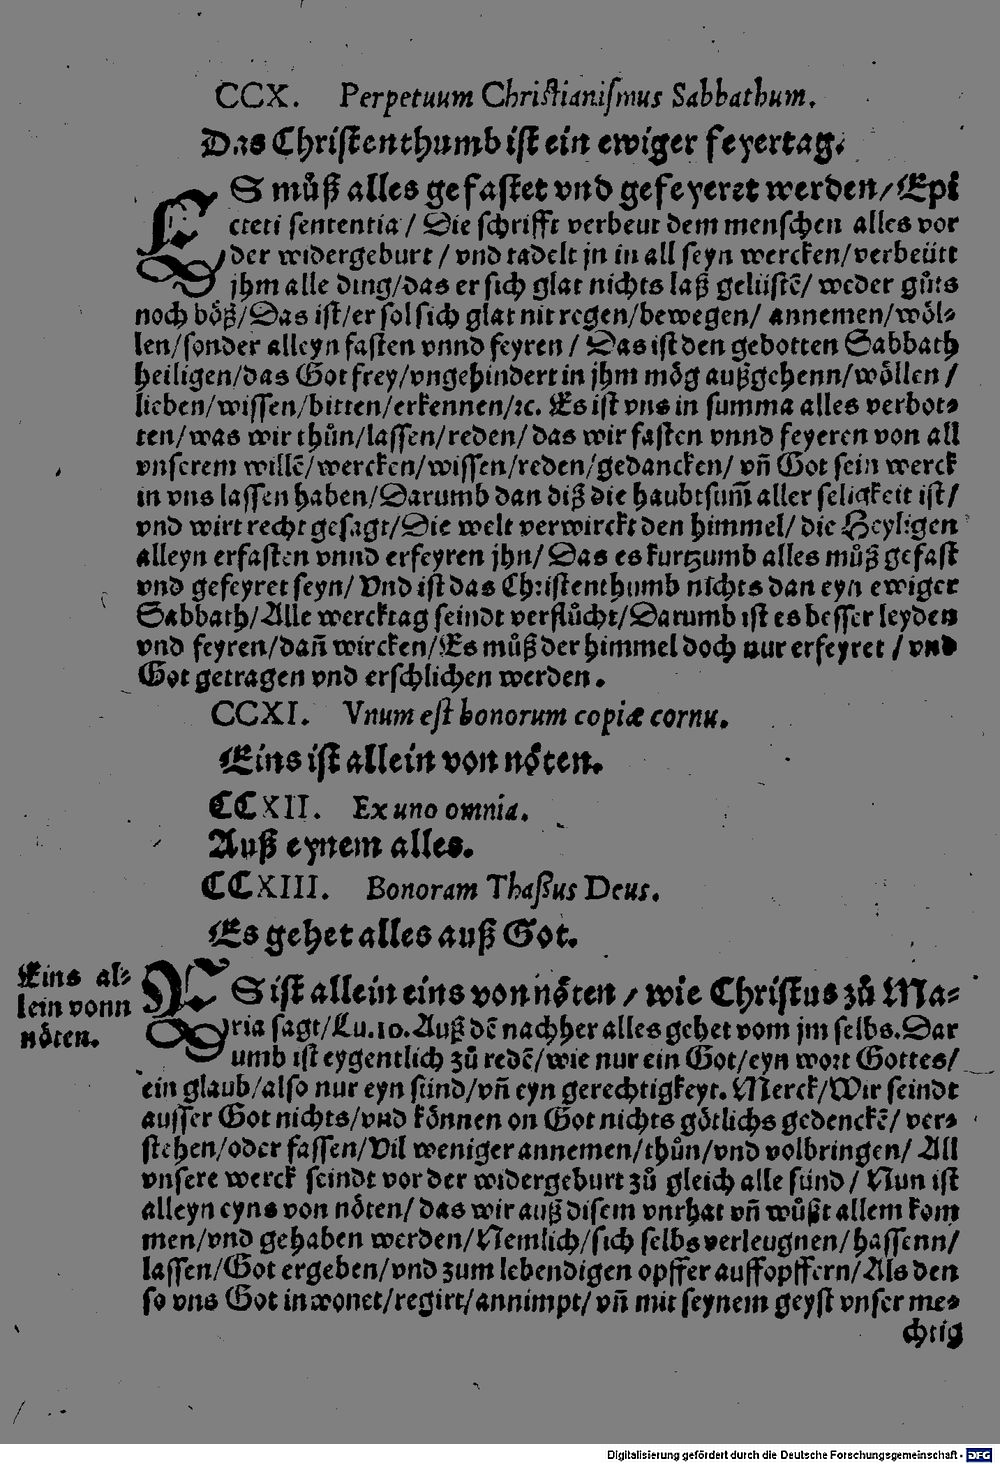 CCX. Perpetuum Christianiſmus Sabbathum.
Das Christenthumb ist ein ewiger feyertag.
ES můß alles gefastet vnd gefeyeret werden/Epi
cteti sententia / Die schrifft verbeut dem menschen alles vor
der widergeburt / vnd tadelt jn in all seyn wercken/verbeütt
jhm alle ding/das er sich glat nichts laß gelüstẽ/ weder gůts
noch böß/Das ist/er sol sich glat nit regen/bewegen/ annemen/wöl⸗
len/sonder alleyn fasten vnnd feyren / Das ist den gebotten Sabbath
heiligen/das Got frey/vngehindert in jhm mög außgehenn/wöllen /
lieben/wissen/bitten/erkennen/ꝛc. Es ist vns in summa alles verbot⸗
ten/was wir thůn/lassen/reden/das wir fasten vnnd feyeren von all
vnserem willẽ/wercken/wissen/reden/gedancken/ vñ Got sein werck
in vns lassen haben/Darumb dan diß die haubtsum̃ aller seligkeit ist/
vnd wirt recht gesagt/Die welt verwirckt den himmel/ die Heyligen
alleyn erfasten vnnd erfeyren jhn/ Das es kurtzumb alles můß gefast
vnd gefeyret seyn/ Vnd ist das Christenthumb nichts dan eyn ewiger
Sabbath/Alle wercktag seindt verflůcht/Darumb ist es besser leyden
vnd feyren/dañ wircken/Es můß der himmel doch nur erfeyret / vnd
Got getragen vnd erschlichen werden.
CCXI. Vnum eſt bonorum copiæ cornu.
Eins ist allein von nöten.
CCXII. Ex uno omnia.
Auß eynem alles.
CCXIII. Bonoram Thaßus Deus.
Es gehet alles auß Got.
Eins al⸗
lein vonn
nöten.
ES ist allein eins von nöten / wie Christus zů Ma⸗
ria sagt/Lu.10. Auß dẽ nachher alles gehet vom jm selbs. Dar
umb ist eygentlich zů redẽ/wie nur ein Got/eyn wort Gottes/
ein glaub/also nur eyn sünd/vñ eyn gerechtigkeyt. Merck/Wir seindt
ausser Got nichts/vnd können on Got nichts götlichs gedenckẽ/ ver⸗
stehen/oder fassen/Vil weniger annemen/thůn/vnd volbringen/ All
vnsere werck seindt vor der widergeburt zů gleich alle sünd / Nun ist
alleyn eyns von nöten/ das wir auß disem vnrhat vñ wůßt allem kom
men/vnd gehaben werden/Nemlich/sich selbs verleugnen/hassenn/
lassen/Got ergeben/vnd zum lebendigen opffer auffopffern/Als den
so vns Got inwonet/regirt/annimpt/ vñ mit seynem geyst vnser me⸗
chtig
Digitalisierung gefördert durch die Deutsche Forschungsgemeinschaft - DFG